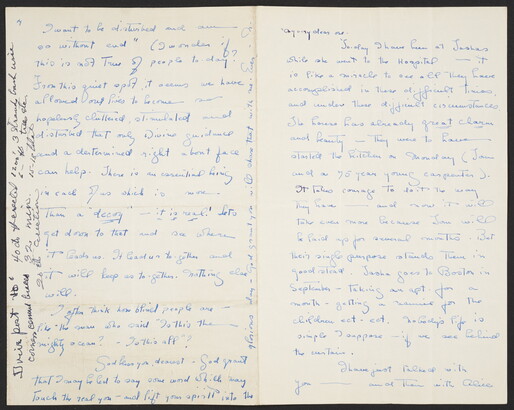 I want to be disturbed and am
so without end" (I wonder if
this is not True of people to day?
From this quiet spot, it seems we have
allowed our lives to become so
hopelessly cluttered, stimulated and
disturbed that only Divine guidance
and a determined right about face
can help. There is an essential being
in each of us which is more
than a decoy — it is real! Let's
get down to that and see where
it leads us. It lead us to gether and
it will keep us to gether. Nothing else
will.
I often think how blind people are —
like the man who said "Is this the
mighty ocean? - Is this all"?
God bless you, dearest - God grant
that I may be led to say some word which may
touch the real you — and lift your spirit into the
glorious day - God grant you will share that with me
Friday I have been at Sashas
while she went to the Hospital — it
is like a miracle to see all they have
accomplished in these difficult times,
and under these difficult circumstances
The house has already great charm
and beauty — They were to have
started the kitchen on Monday (Ian
and a 75 year young carpenter).
It takes courage to do it the way
they have — and now it will
take even more because Ian will
be laid up for several months. But
their single purpose stands them in
good stead. Sasha goes to Boston in
September - taking an apt. for a
month - getting a nurse for the
children ect - ect. Nobody's life is
simple I suppose - if we see behind
the curtain.
I have just talked with
you — and then with Alice